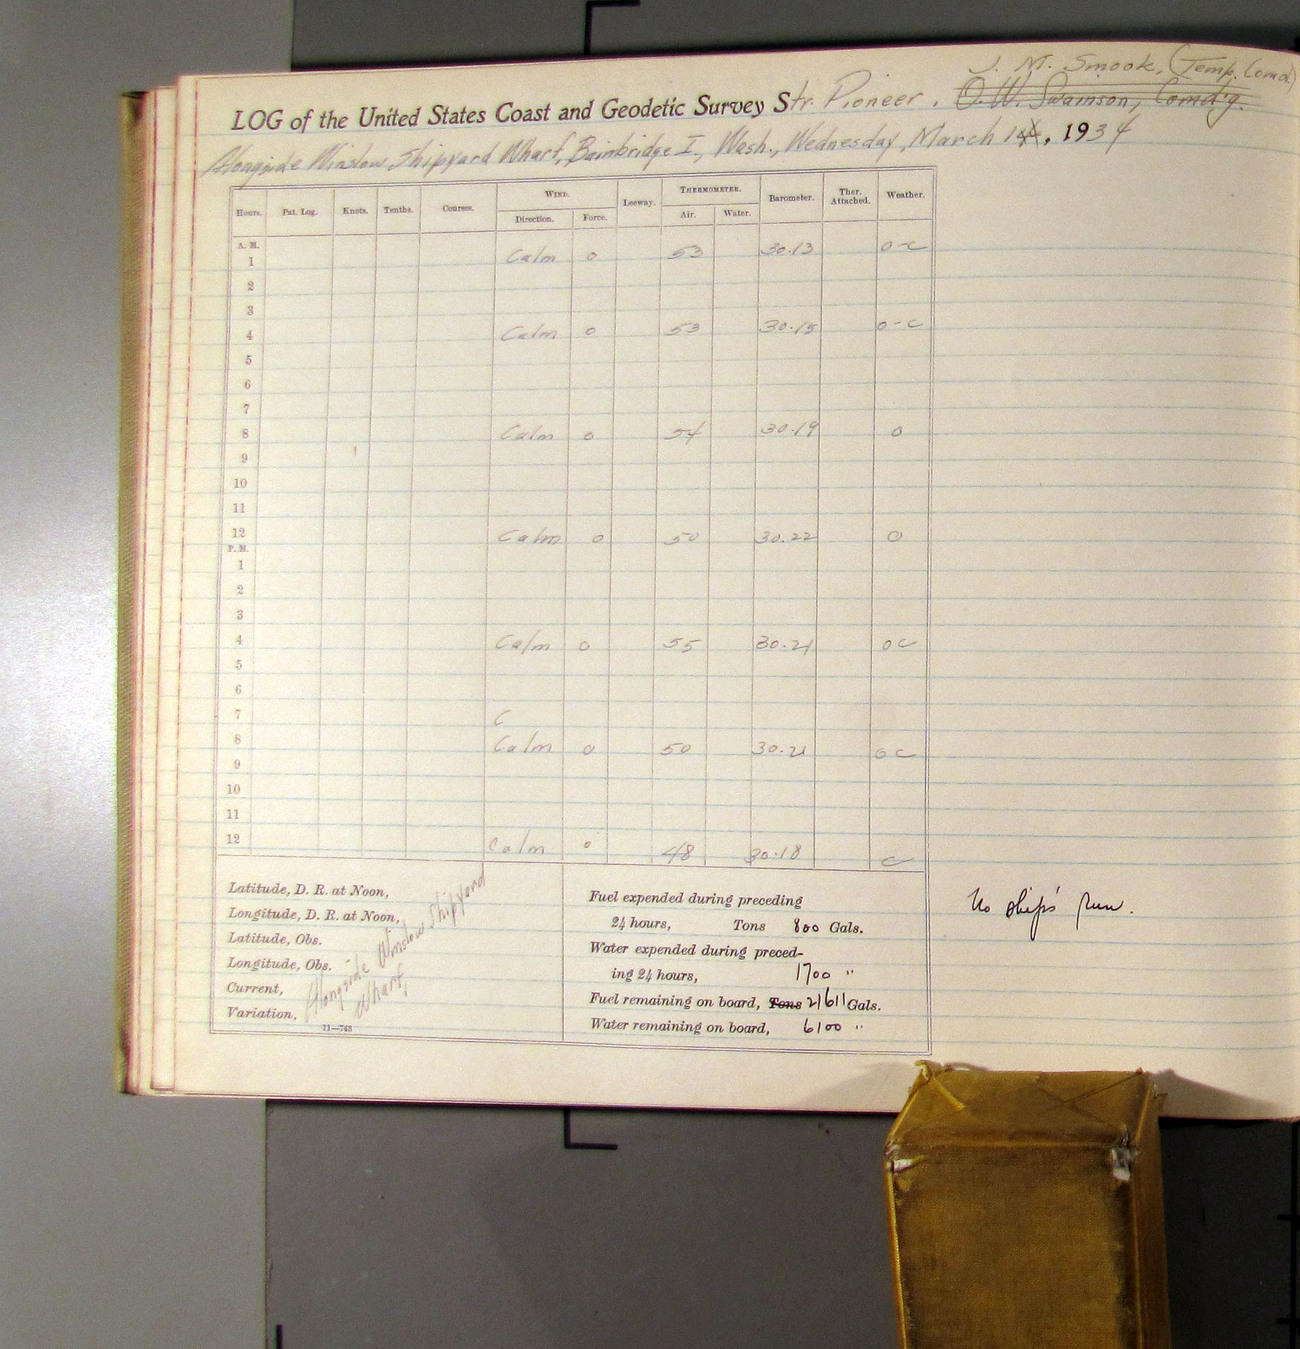 J. M. Smook, (Temp. Comd.)
LOG of the United States Coast and Geodetic Survey Str. Pioneer, O. W. Swainson, Comd'g.
Alongside Winslow Shipyard Wharf, Bainbridge I., Wash., Wednesday, March 14, 1934
Hours. Pat. Log. Knots. Tenths. Courses. WIND. Leeway. THERMOMETER. Barometer. Ther. Attached. Weather.
Direction. Force. Air. Water.
A. M.
1 Calm 0 53 30.13 o-c
2
3
4 Calm 0 53 30.15 o-c
5
6
7
8 Calm 0 54 30.19 o
9
10
11
12 Calm 0 50 30.22 o
P. M.
1
2
3
4 Calm 0 55 30.21 oc
5
6
7 C
8 Calm 0 50 30.21 oc
9
10
11
12 Calm 0 48 30.18 c
Latitude, D. R. at Noon,
Longitude, D. R. at Noon,
Latitude, Obs.
Longitude, Obs.
Current,
Variation,
Alongside Winslow Shipyard
Wharf,
11—763
Fuel expended during preceding
24 hours, Tons 800 Gals.
Water expended during preced-
ing 24 hours, 1700 "
Fuel remaining on board, Tons 21611 Gals.
Water remaining on board, 6100 "
No ship's run.